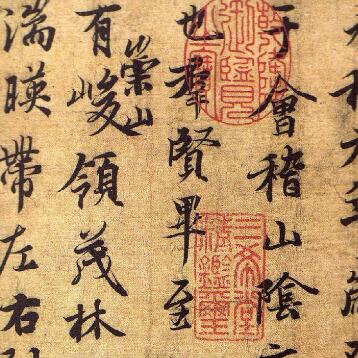 于會稽山陰
也羣賢畢至
有崇山峻領茂林
湍暎帶左右
三希堂